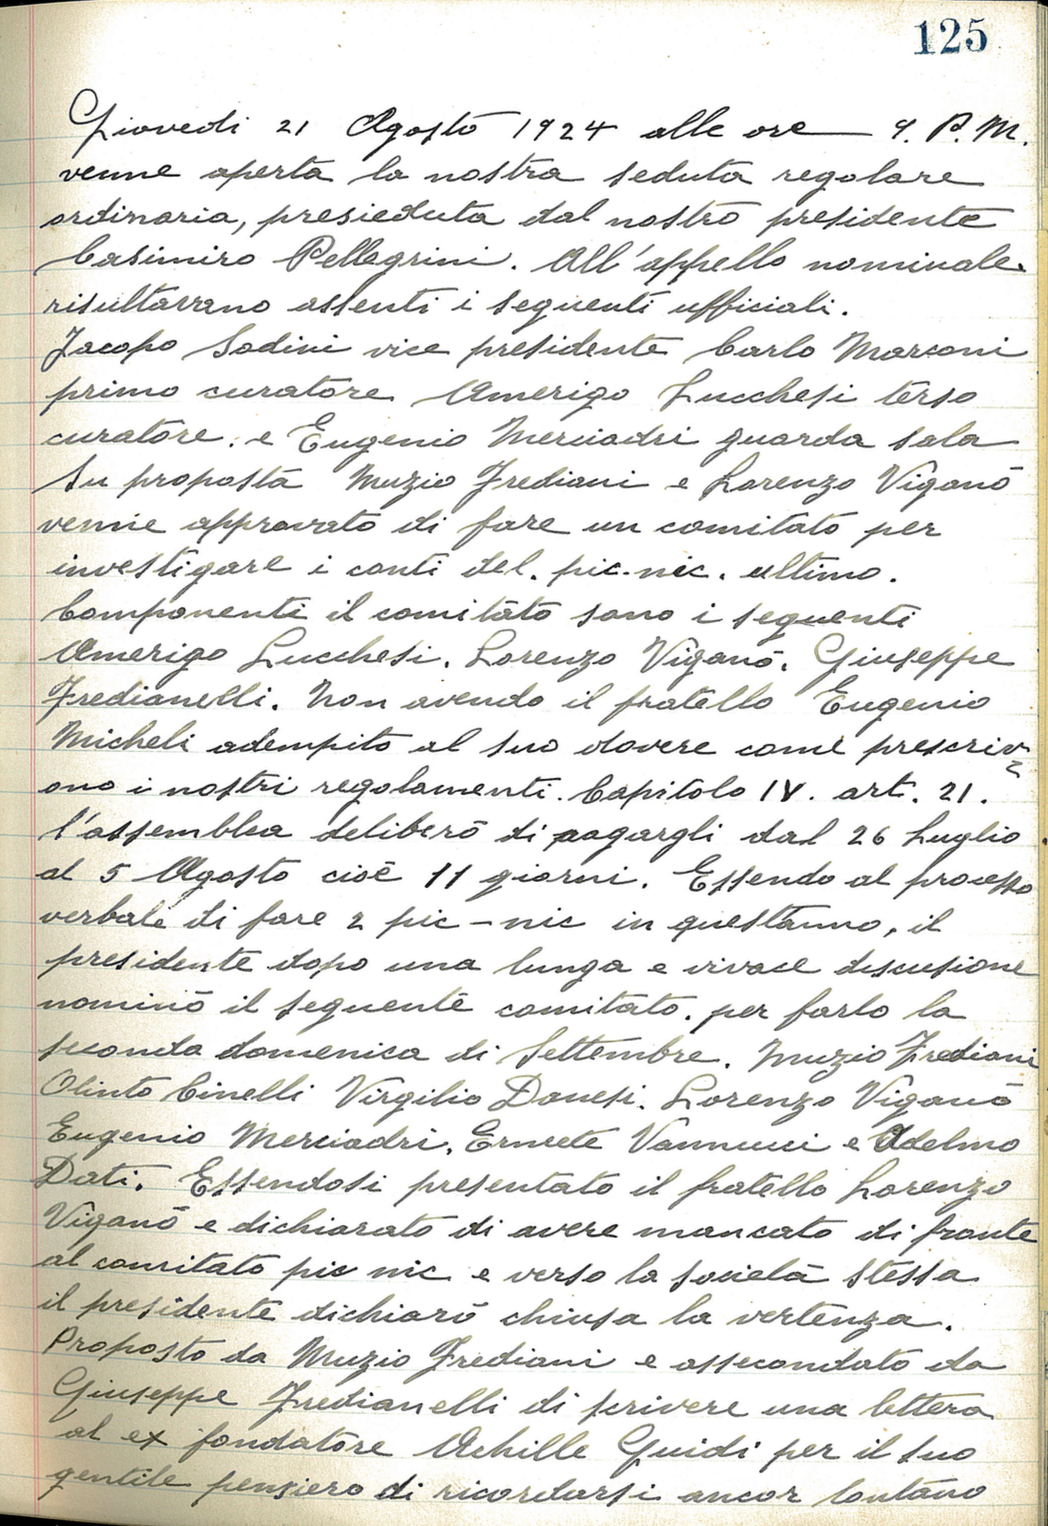 125
Giovedi 21 Agosto 1924 alle ore — 9. P. M.
venne aperta la nostra seduta regolare
ordinaria, presieduta dal nostro presidente
Casimiro Pellegrini. All'appello nominale.
risultarrano assenti i seguenti ufficiali.
Jacopo Sodini vice presidente Carlo Marconi
primo curatore Amerigo Lucchesi terso
curatore. e Eugenio Merciadri guarda sala
Su proposta Muzio Frediani e Lorenzo Viganó
venne approvato di fare un comitato per
investigare i conti del. pic-nic. ultimo.
Componenti il comitato sono i seguenti
Amerigo Lucchesi. Lorenzo Viganó. Giuseppe
Fredianelli. Non avendo il fratello Eugenio
Micheli adempito al suo dovere come prescriv=
ono i nostri regolamenti. Capitolo IV. art. 21.
l'assemblea deliberó di pagargli dal 26 Luglio
al 5 Agosto cioé 11 giorni. Essendo al processo
verbale di fare 2 pic-nic in questanno, il
presidente dopo una lunga e vivace discusione
nominó il seguente comitato. per farlo la
seconda domenica di Settembre. Muzio Frediani
Olinto Cinelli Virgilio Danesi. Lorenzo Viganó
Eugenio Merciadri. Ernete Vannucci e Adelmo
Dati. Essendosi presentato il fratello Lorenzo
Viganó e dichiarato di avere mancato di fronte
al comitato pic nic e verso la societá stessa
il presidente dichiaró chiusa la vertenza.
Proposto da Muzio Frediani e assecondato da
Giuseppe Fredianelli di scrivere una lettera
al ex fondatore Achille Guidi per il suo
gentile pensiero di ricordarsi ancor lontano